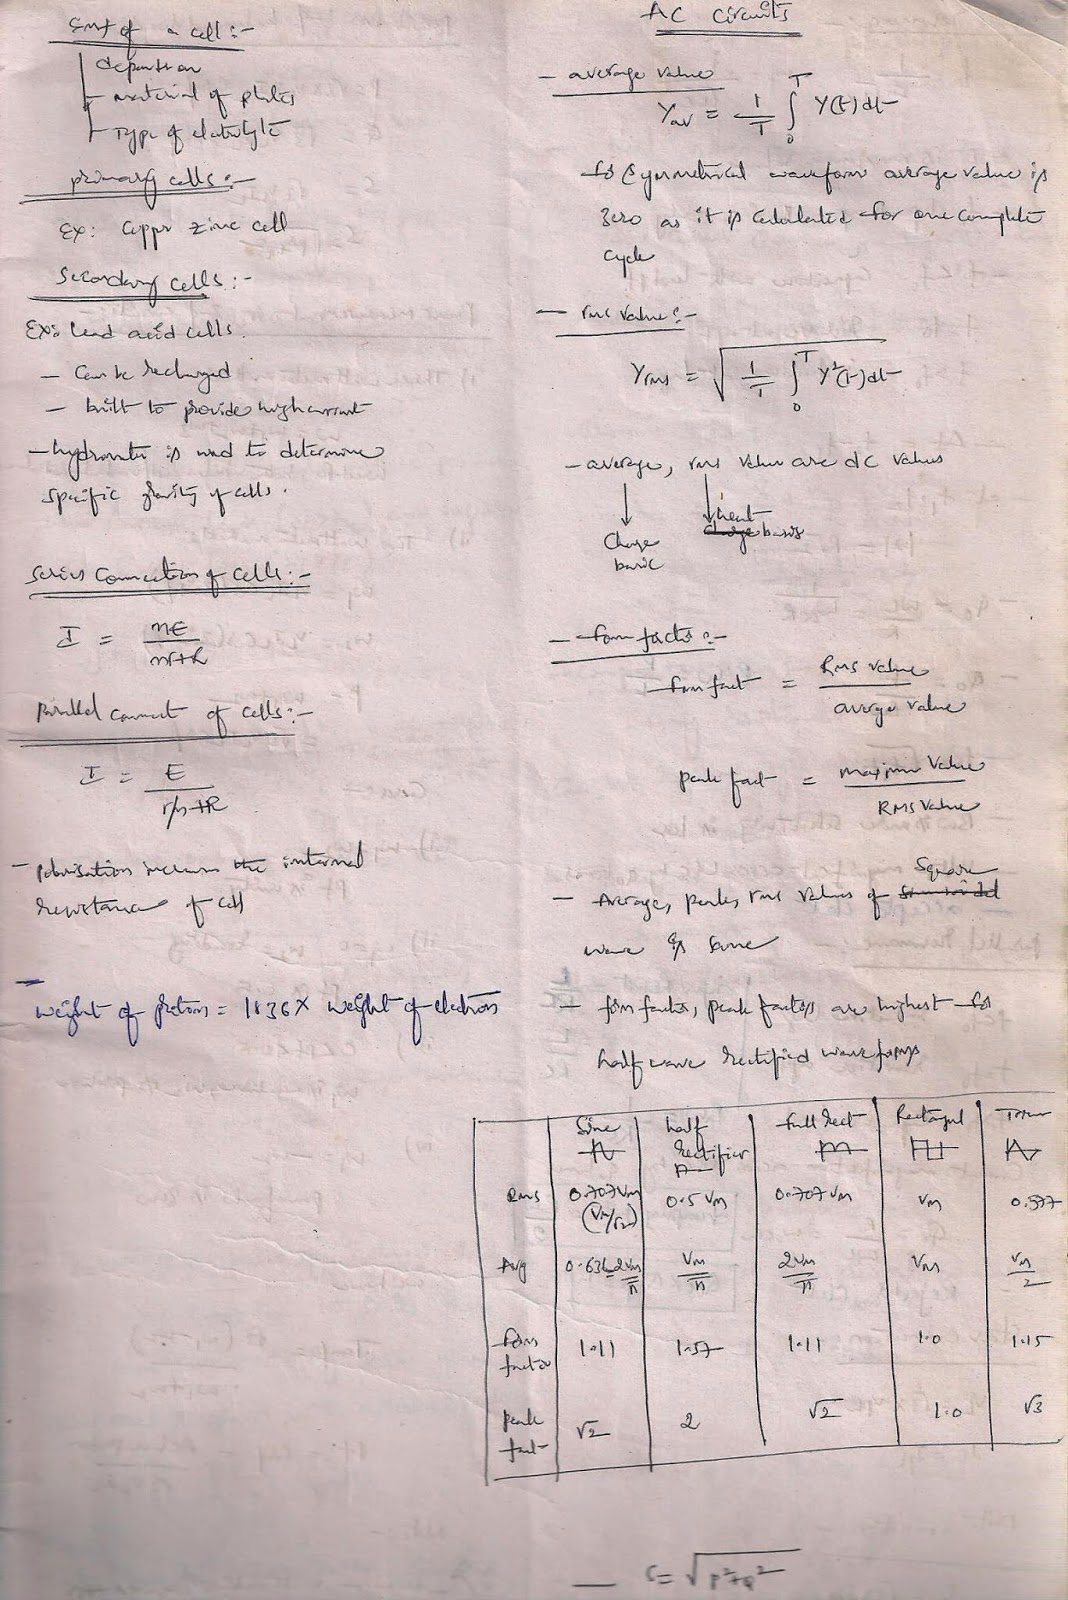 Emf of a cell :-
depends on
- material of plates
- Type of eletrolyte
primary cells :-
Ex: Copper zinc cell
Secondary cells :-
Ex: lead acid cells.
- Can be recharged
- built to provide high current
- hydrometer is used to determine
specific gravity of cells.
Series Connection of Cells :-
I = nE / nr+R
Parallel Connect of cells :-
I = E / r/n +R
- Polarisation increases the internal
resistance of cell
- weight of protons = 1836 x weight of electrons
AC Circuits
- average value
Yav = 1/T ∫₀ᵀ Y(t) dt
- for Symmetrical waveform average value is
zero as it is Calculated for one Complete
cycle
- rms value :-
Yrms = √(1/T ∫₀ᵀ Y²(t) dt)
- average, rms value are dc values
heat
Charge basis
basis
- form factor :-
form fact = RMS value / average value
peak fact = maximum value / RMS value
Square
- Average, peak, rms values of
wave is same
- form factor, peak factors are highest for
half wave rectified waveforms
Sine half rectifier full rect Rectangul
Rms 0.707Vm (Vm/√2) 0.5 Vm 0.707 Vm Vm 0.577
Avg 0.636 2Vm/π Vm/π 2Vm/π Vm Vm/2
form factor 1.11 1.57 1.11 1.0 1.15
peak fact √2 2 √2 1.0 √3
- S = √P²+Q²